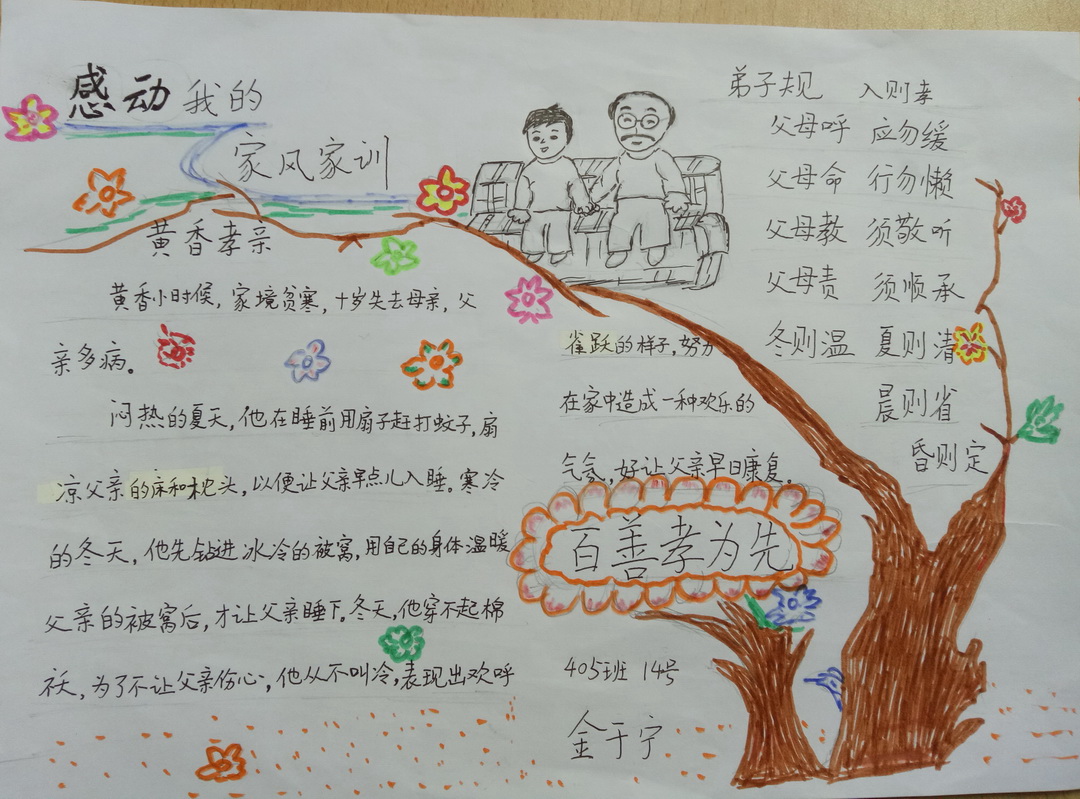 感动我的
家风家训
黄香孝亲
黄香小时候，家境贫寒，十岁失去母亲，父
亲多病。
闷热的夏天，他在睡前用扇子赶打蚊子，扇
凉父亲的床和枕头，以便让父亲早点儿入睡。寒冷
的冬天，他先钻进冰冷的被窝，用自己的身体温暖
父亲的被窝后，才让父亲睡下。冬天，他穿不起棉
袄，为了不让父亲伤心，他从不叫冷，表现出欢呼
雀跃的样子，努力
在家中造成一种欢乐的
气氛，好让父亲早日康复。
弟子规 入则孝
父母呼 应勿缓
父母命 行勿懒
父母教 须敬听
父母责 须顺承
冬则温 夏则清
晨则省
昏则定
百善孝为先
405班 14号
金于宁